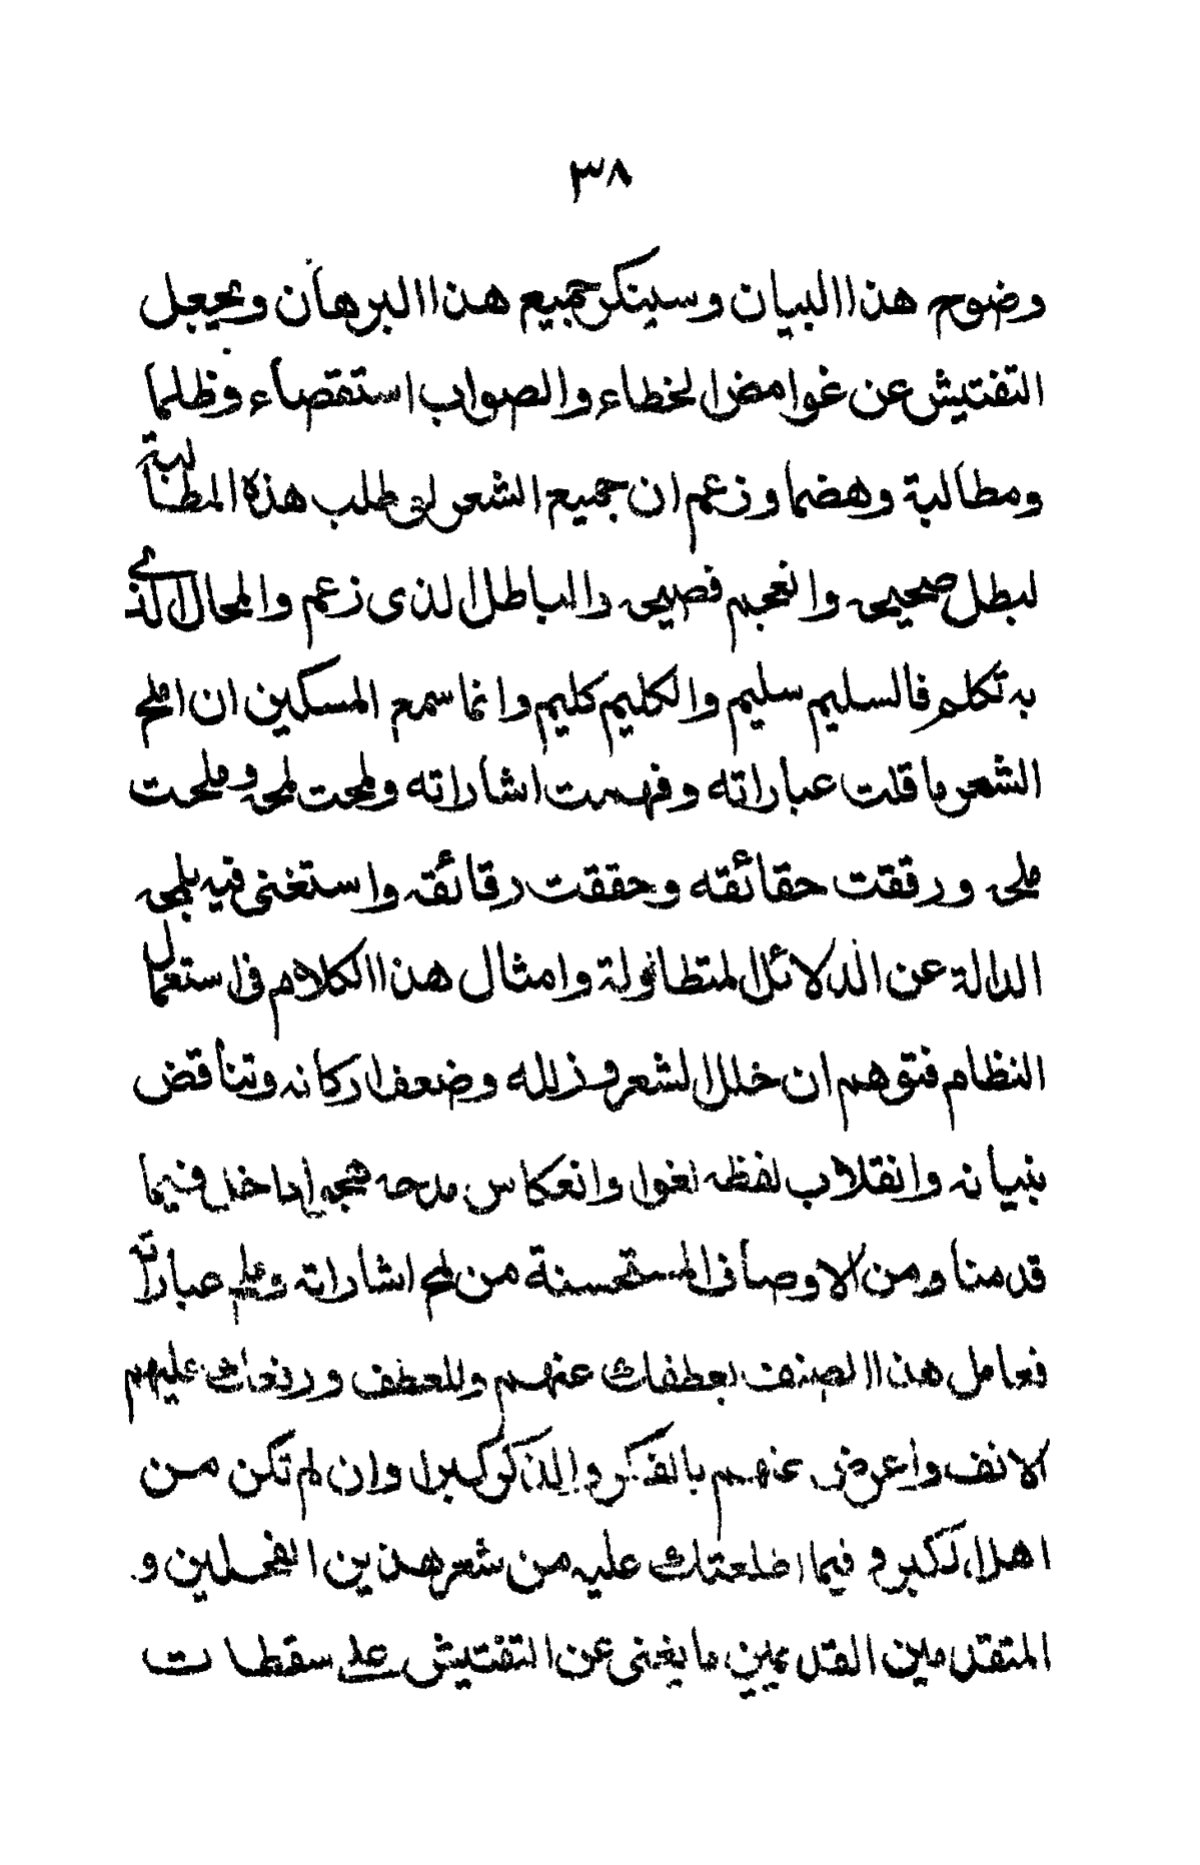 ٣٨
وضوح هذا البيان وسينكر جميع هذا البرهان ويجعل
التفتيش عن غوامض الخطاء والصواب استقصاء وظلما
ومطالبة وهضما وزعم ان جميع الشعر لو طلب هذه المطالبة
لبطل صحيحه وانعجم فصيحه والباطل الذى زعم والمحال الذى
به تكلم فالسليم سليم والكليم كليم وانما سمع المسكين ان املح
الشعر ما قلت عباراته وفهمت اشاراته ولمحت لمحه وملحت
ملحه ورققت حقائقه وحققت رقائقه واستغنى فيه بلمحه
الدالة عن الدلائل المتطاولة وامثال هذا الكلام فى استعمال
النظام فتوهم ان خلل الشعر وزلله وضعف اركانه وتناقض
بنيانه وانقلاب لفظه لغوا وانعكاس مدحه هجوا داخل فيما
قدمنا ومن الاوصاف المستحسنة من لمح اشاراته وملح عباراته
فعامل هذا الصنف بعطفك عنهم وللعطف ورفعك عليهم
الانف واعرض عنهم بالفكر والذكر كبرا وان لم تكن من
اهل الكبر و فيما اطلعتك عليه من شعر هذين الفحلين و
المتقدمين القديمين ما يغنى عن التفتيش على سقطات